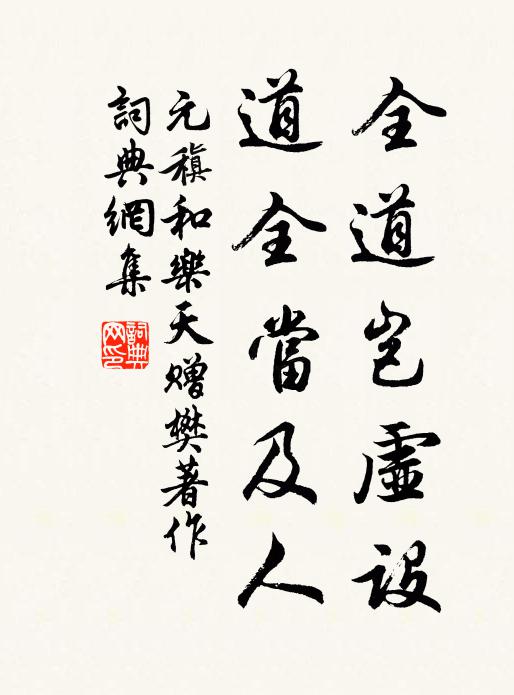 全道豈虛設
道全當及人
元稹和樂天贈樊著作
詞典網集
詞典网印